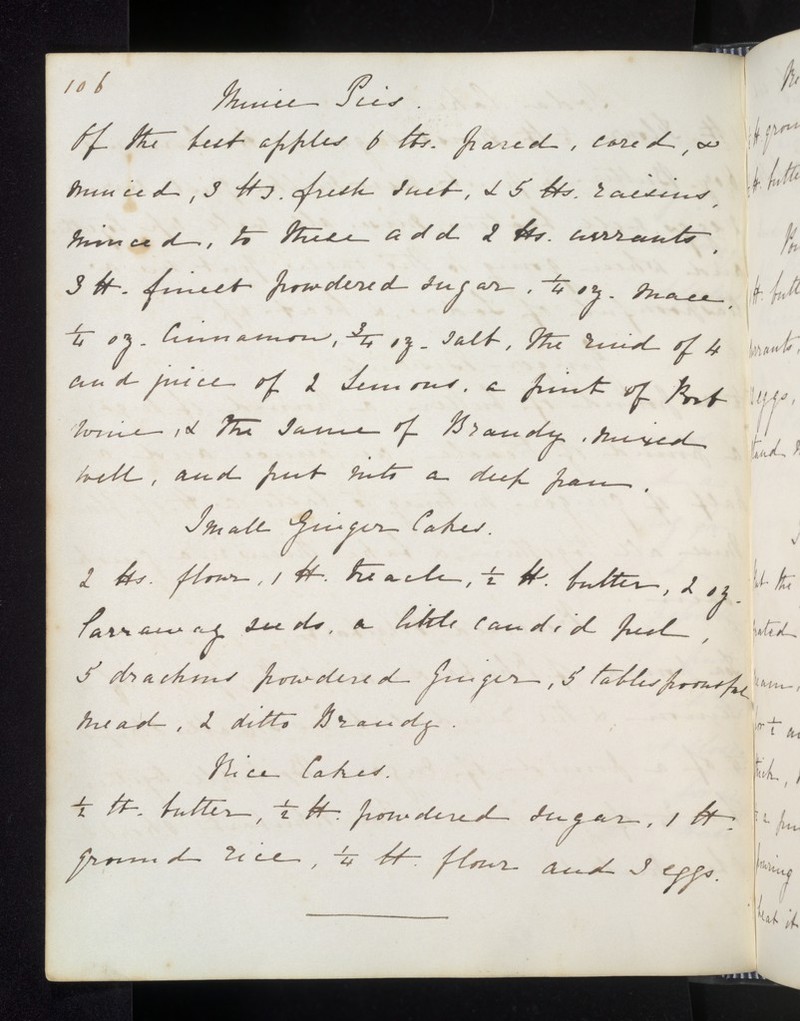 106
Mince Pies.
Of the best apples 6 lbs. pared, cored, &
minced, 3 lbs. fresh suet, & 5 lbs. raisins,
minced, to these add 2 lbs. currants,
3 lb. finest powdered sugar, ¼ oz. mace,
¼ oz. Cinnamon, ¾ oz. salt, the rind of 4
and juice of 2 Lemons, a pint of Port
wine, & the same of Brandy, mixed
well, and put into a deep pan.
Small Ginger Cakes.
2 lbs. flour, 1 lb. treacle, ½ lb. butter, 2 oz.
Carraway seeds, a little candid peel,
5 drachms powdered Ginger, 5 tablespoonsful
mead, 2 ditto Brandy.
Rice Cakes.
½ lb. butter, ½ lb. powdered sugar, 1 lb.
ground rice, ¼ lb. flour and 3 eggs.